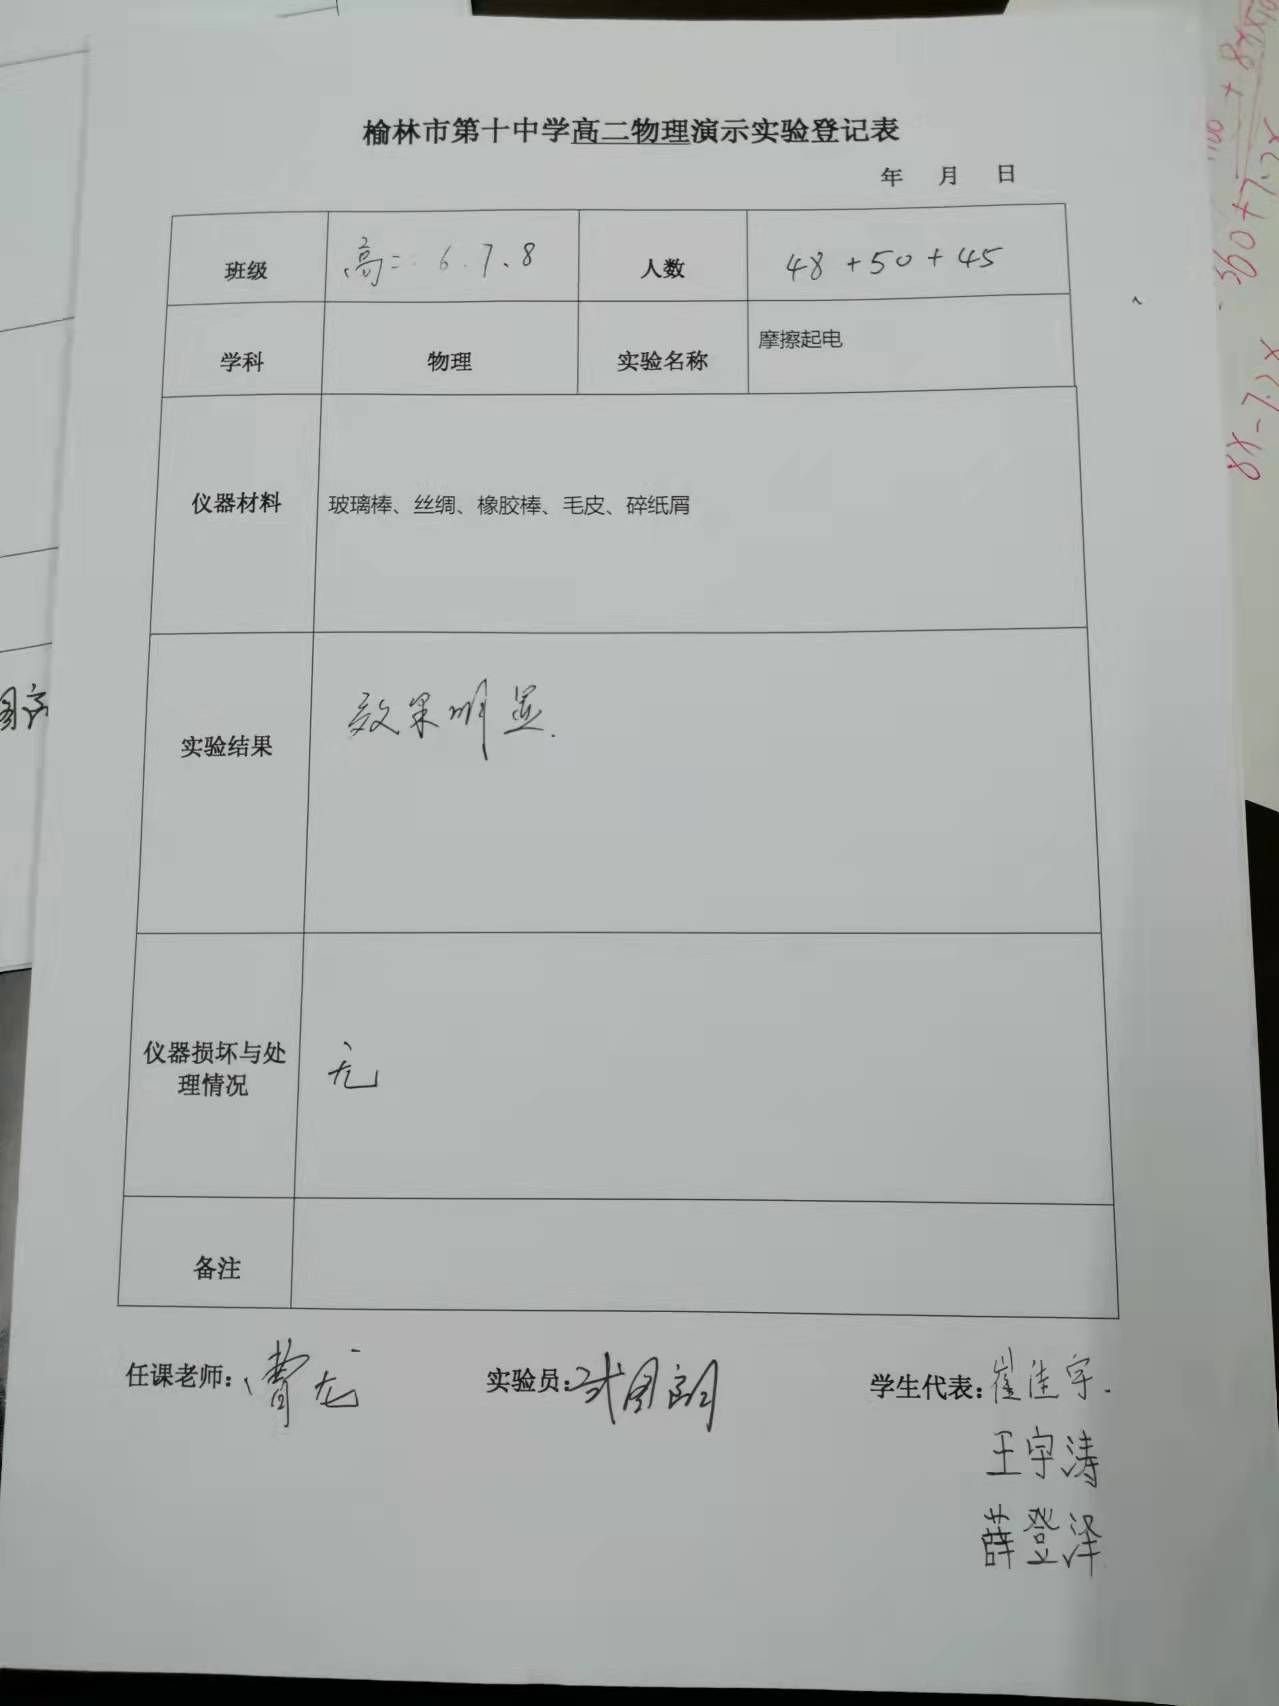 榆林市第十中学高二物理演示实验登记表
年 月 日
班级 高二 6.7.8 人数 48+50+45
学科 物理 实验名称 摩擦起电
仪器材料 玻璃棒、丝绸、橡胶棒、毛皮、碎纸屑
实验结果 效果明显.
仪器损坏与处
理情况 无
备注
任课老师: 曹龙 实验员: 学生代表: 崔佳宇.
王宇涛
薛登泽
8X-7.2X